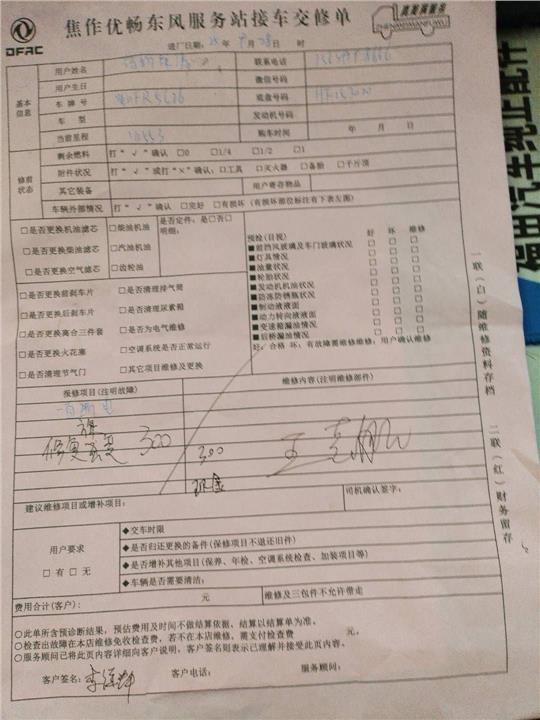 DFAC
焦作优畅东风服务站接车交修单
进厂日期: 年 月 日 时
基本信息
用户姓名 联系电话
用户生日 微信号码
车牌号 底盘号码
车型 发动机号码
当前里程 购车时间 年 月 日
修前状态
剩余燃料 打“√”确认 □0 □1/4 □1/2 □1
附件状况 打“√”或打“×”确认:□工具 □灭火器 □备胎 □千斤顶
其它装备 用户寄存物品
车辆外部情况 打“√”确认 □完好 □有损坏(有损坏部位标注有下表左图)
□是否更换机油滤芯 □柴油机油 是否定件:是□否□
□是否更换柴油滤芯 □汽油机油 明细:
□是否更换空气滤芯 □齿轮油
□是否更换前刹车片 □是否清理排气筒
□是否更换后刹车片 □是否清理尿素箱
□是否更换离合三件套 □是否为电气维修
□是否更换火花塞 □空调系统是否正常运行
□是否清理节气门 □其它项目维修及更换
预检(目视) 好 坏 维修
■前挡风玻璃及车门玻璃状况 □ □ □
■灯具情况 □ □ □
■油量状况 □ □ □
■轮胎状况 □ □ □
■发动机机油状况 □ □ □
■防冻防锈瓶状况 □ □ □
■制动液液面 □ □ □
■动力转向液液面 □ □ □
■变速箱漏油情况 □ □ □
■后桥漏油情况 □ □ □
好:合格 坏:有故障需维修维修:用户确认维修
报修项目(注明故障) 维修内容(注明维修部件)
300
300
建议维修项目或增补项目: 司机确认签字:
用户要求
□有□无
◆交车时限
◆是否归还更换的备件(保修项目不退还旧件)
◆是否增补其他项目(保养、年检、空调系统检查、加装项目等)
◆车辆是否需要清洁:
费用合计(客户): 元 维修及三包件不允许带走
○此单所含预诊断结果,预估费用及时间不做结算依据、结算以结算单为准。
○检查出故障在本店维修免收检查费,若不在本店维修,需支付检查费 元。
○服务顾问已将此页内容详细向客户说明,客户签名则表示已理解并接受此页内容。
客户签名: 客户电话: 服务顾问:
一联(白)随维修资料存档 二联(红)财务留存